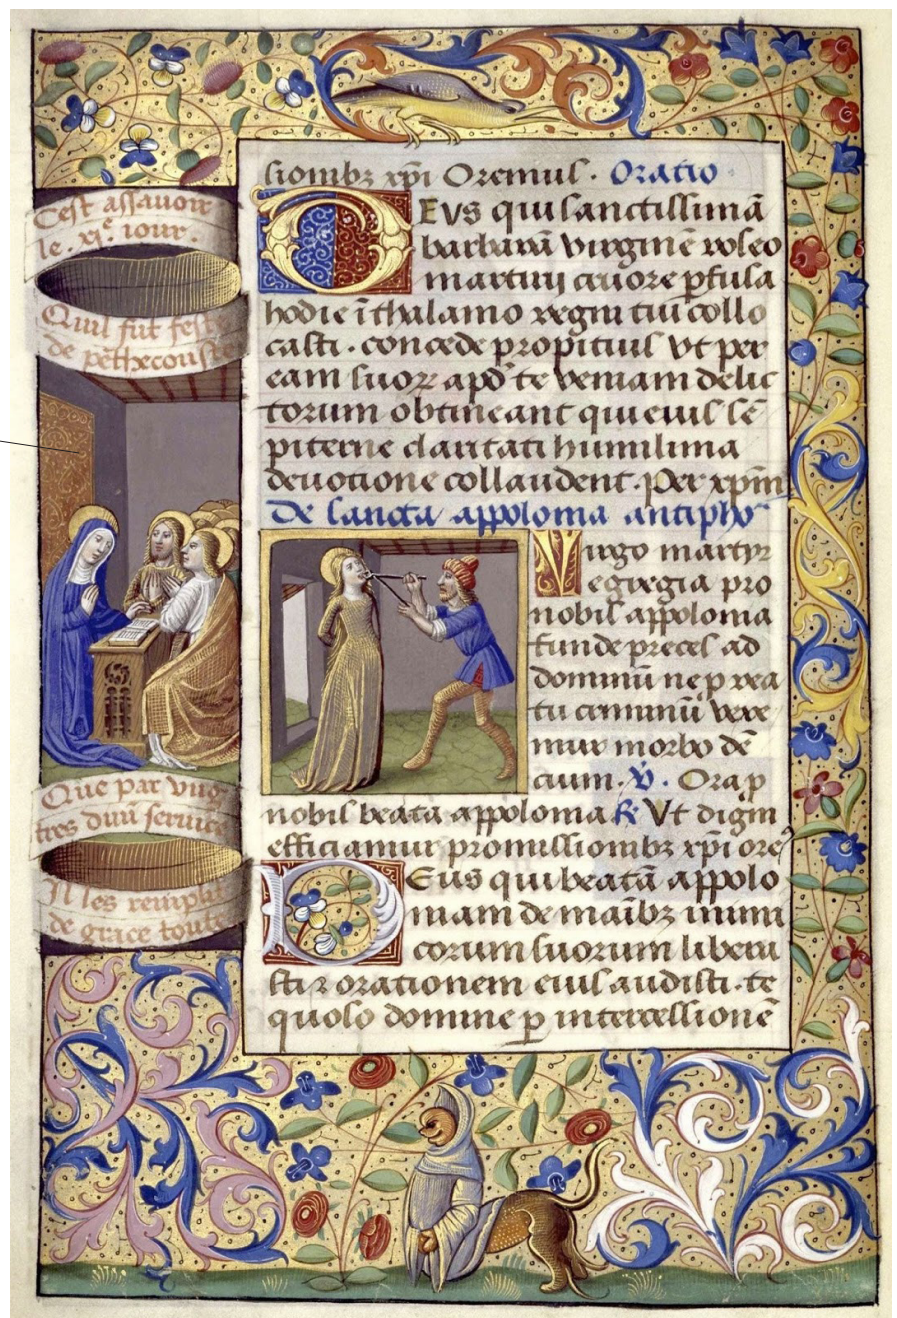 Cest assauoir
le .xi.e iour.
Quil fut feste
de pe͞thecouste
Que par vng
tres diui͞ seruice
Il les remplit
de grace toute
sionibꝫ xp̄i Oremus . Oratio
DEVS qui sanctissimā
barbarā virginē roseo
martirij cruore ꝑfusā
hodie ī thalamo regni tui collo
casti . concede propitius vt per
eam suoꝝ apd' te veniam delic
torum obtineant qui eius sē
piterne claritati humilima
deuotione collaudent. Per xp̄m
De sancta appolonia antipho
Virgo martyr
egregia pro
nobis appolonia
funde preces ad
dominū ne p rea
tu criminū vexe
mur morbo dē
cium . V̄ . Ora p
nobis beata appolonia R̄ Vt digni
efficiamur promissionibꝫ xp̄i ore͞
DEus qui beatā appolo
niam de manibꝫ inimi
corum suorum libera
sti ⁊ orationem eius audisti . te
queso domine ꝑ intercessionē